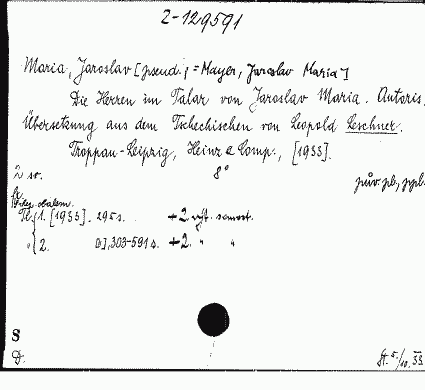 2-129591
Maria, Jaroslav [pseud., = Mayer, Jaroslav Maria]
Die Herren im Talar von Jaroslav Maria. Autoris.
Übersetzung aus dem Tschechischen von Leopold Leschner.
Troppau-Leipzig, Heinz & Comp., [1933].
2 sv. 8°
pův. pl, ppl.
obálem.
1. [1933]. 295 s. +2 samost.
" 2. 303-591 s. +2. " "
S
D.
St. 5./10. 33